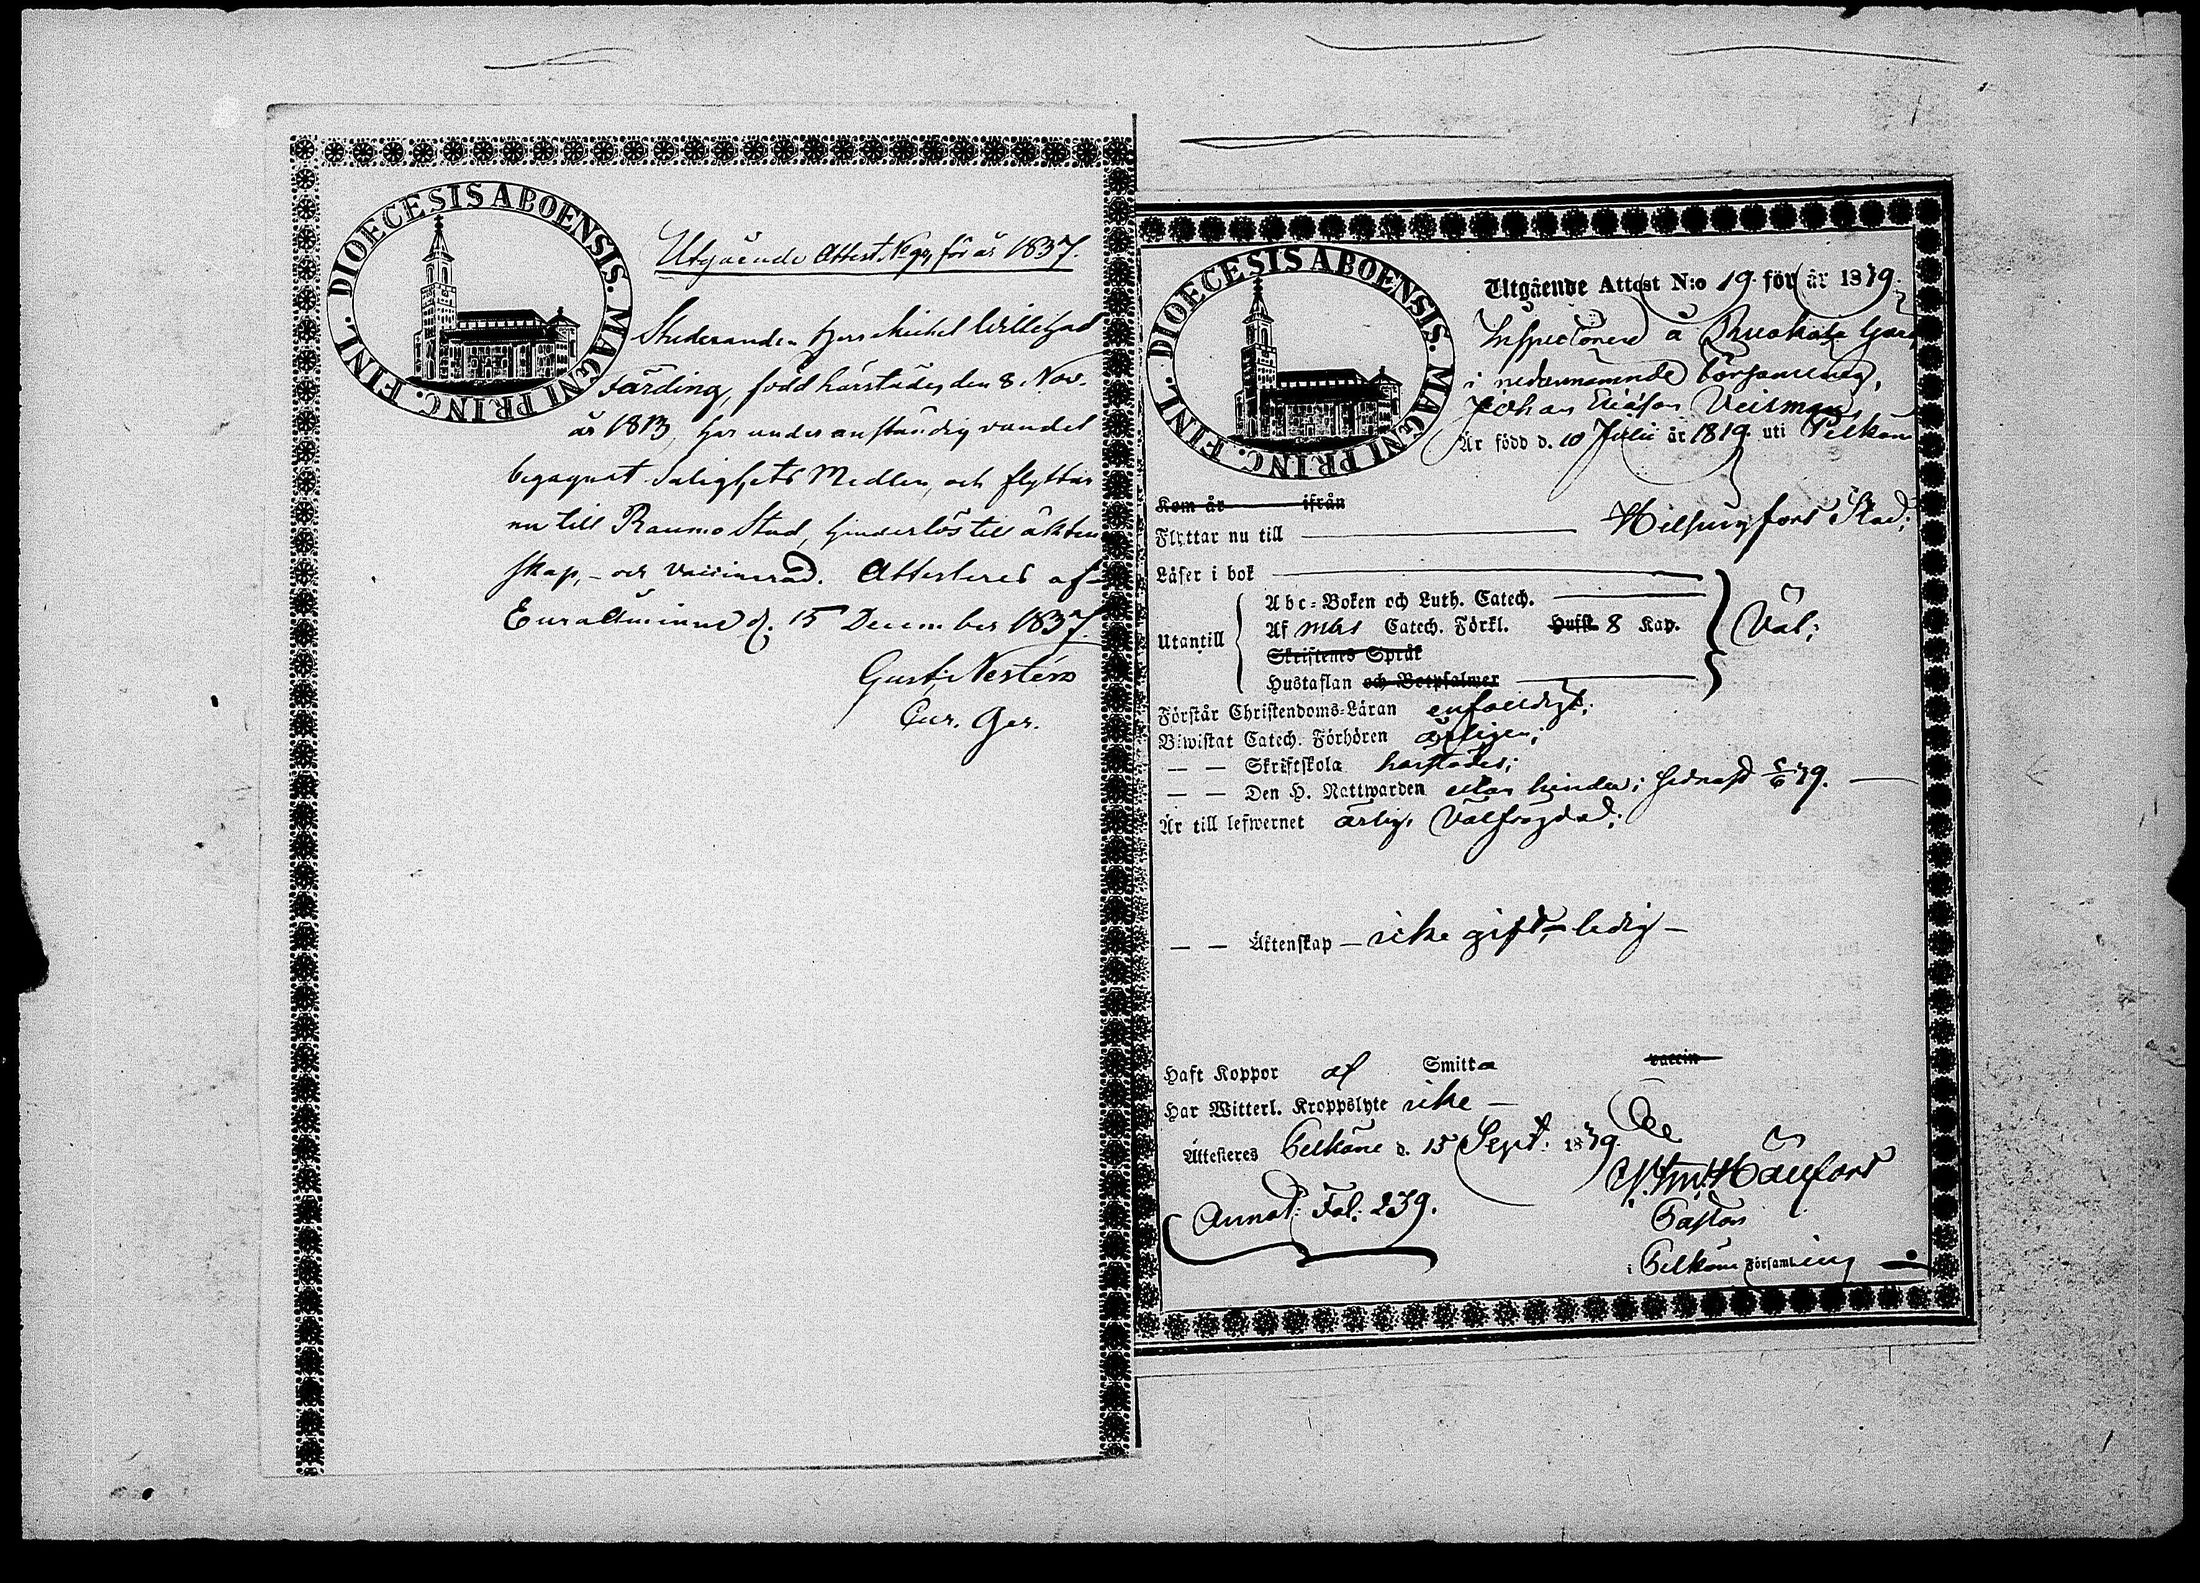 DIOECESIS ABOENSIS. MAGNI PRINC. FINL.
Utgående Attest, No 90, för år 1837.
Studeranden Herr Michel Willehad
Färding, född härstädes den 8 Nov.
år 1813, har under anständig vandel
begagnat Salighets Medlen, och flyttar
nu till Raumo Stad, hinderlös till äkten
skap, - och vaccinerad. Attesteras af
Euraåminne d. 15 December 1837.
Gust: Nestén
Cur. Ger.
DIOECESIS ABOENSIS. MAGNI PRINC. FINL.
Utgående Attest N:o 19. för år 1879.
Inspectoren å Gård
i nedannämnde Församling,
Johan
Är född d. 10 Julii år 1819. uti Pelkäne
Kom år ifrån
Flyttar nu till Helsingfors Stad;
Läser i bok
Utantill
Abc-Boken och Luth. Catech.
Af mbs Catech. Förkl. Hufst. 8 Kap.
Skriftenes Språk
Hustaflan och Botpsalmer
Väl;
Förstår Christendoms-Läran enfaldigt;
Biwistat Catech. Förhören årligen;
— — Skriftskola härstädes;
— — Den H. Nattwarden utan hinder; sednast 5/6 79.
Är till lefwernet ärlig, välfrägdad;
— — Äktenskap — icke gift, - ledig —
Haft Koppor af Smitta vaccin
Har Witterl. Kroppslyte icke —
Attesteres Pelkäne d. 15 Sept: 1879.
Hällfors
Pastor
i Pelkäne Församling
Annot: Fol: 239.